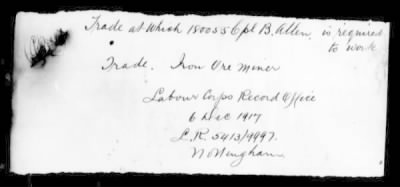 Trade at Which 180055 Cpl B. Allen, is required
to work
Trade. Iron Ore Miner
Labour Corps Record Office
6 Dec 1917
L.R. 5413/9997.
Nottingham